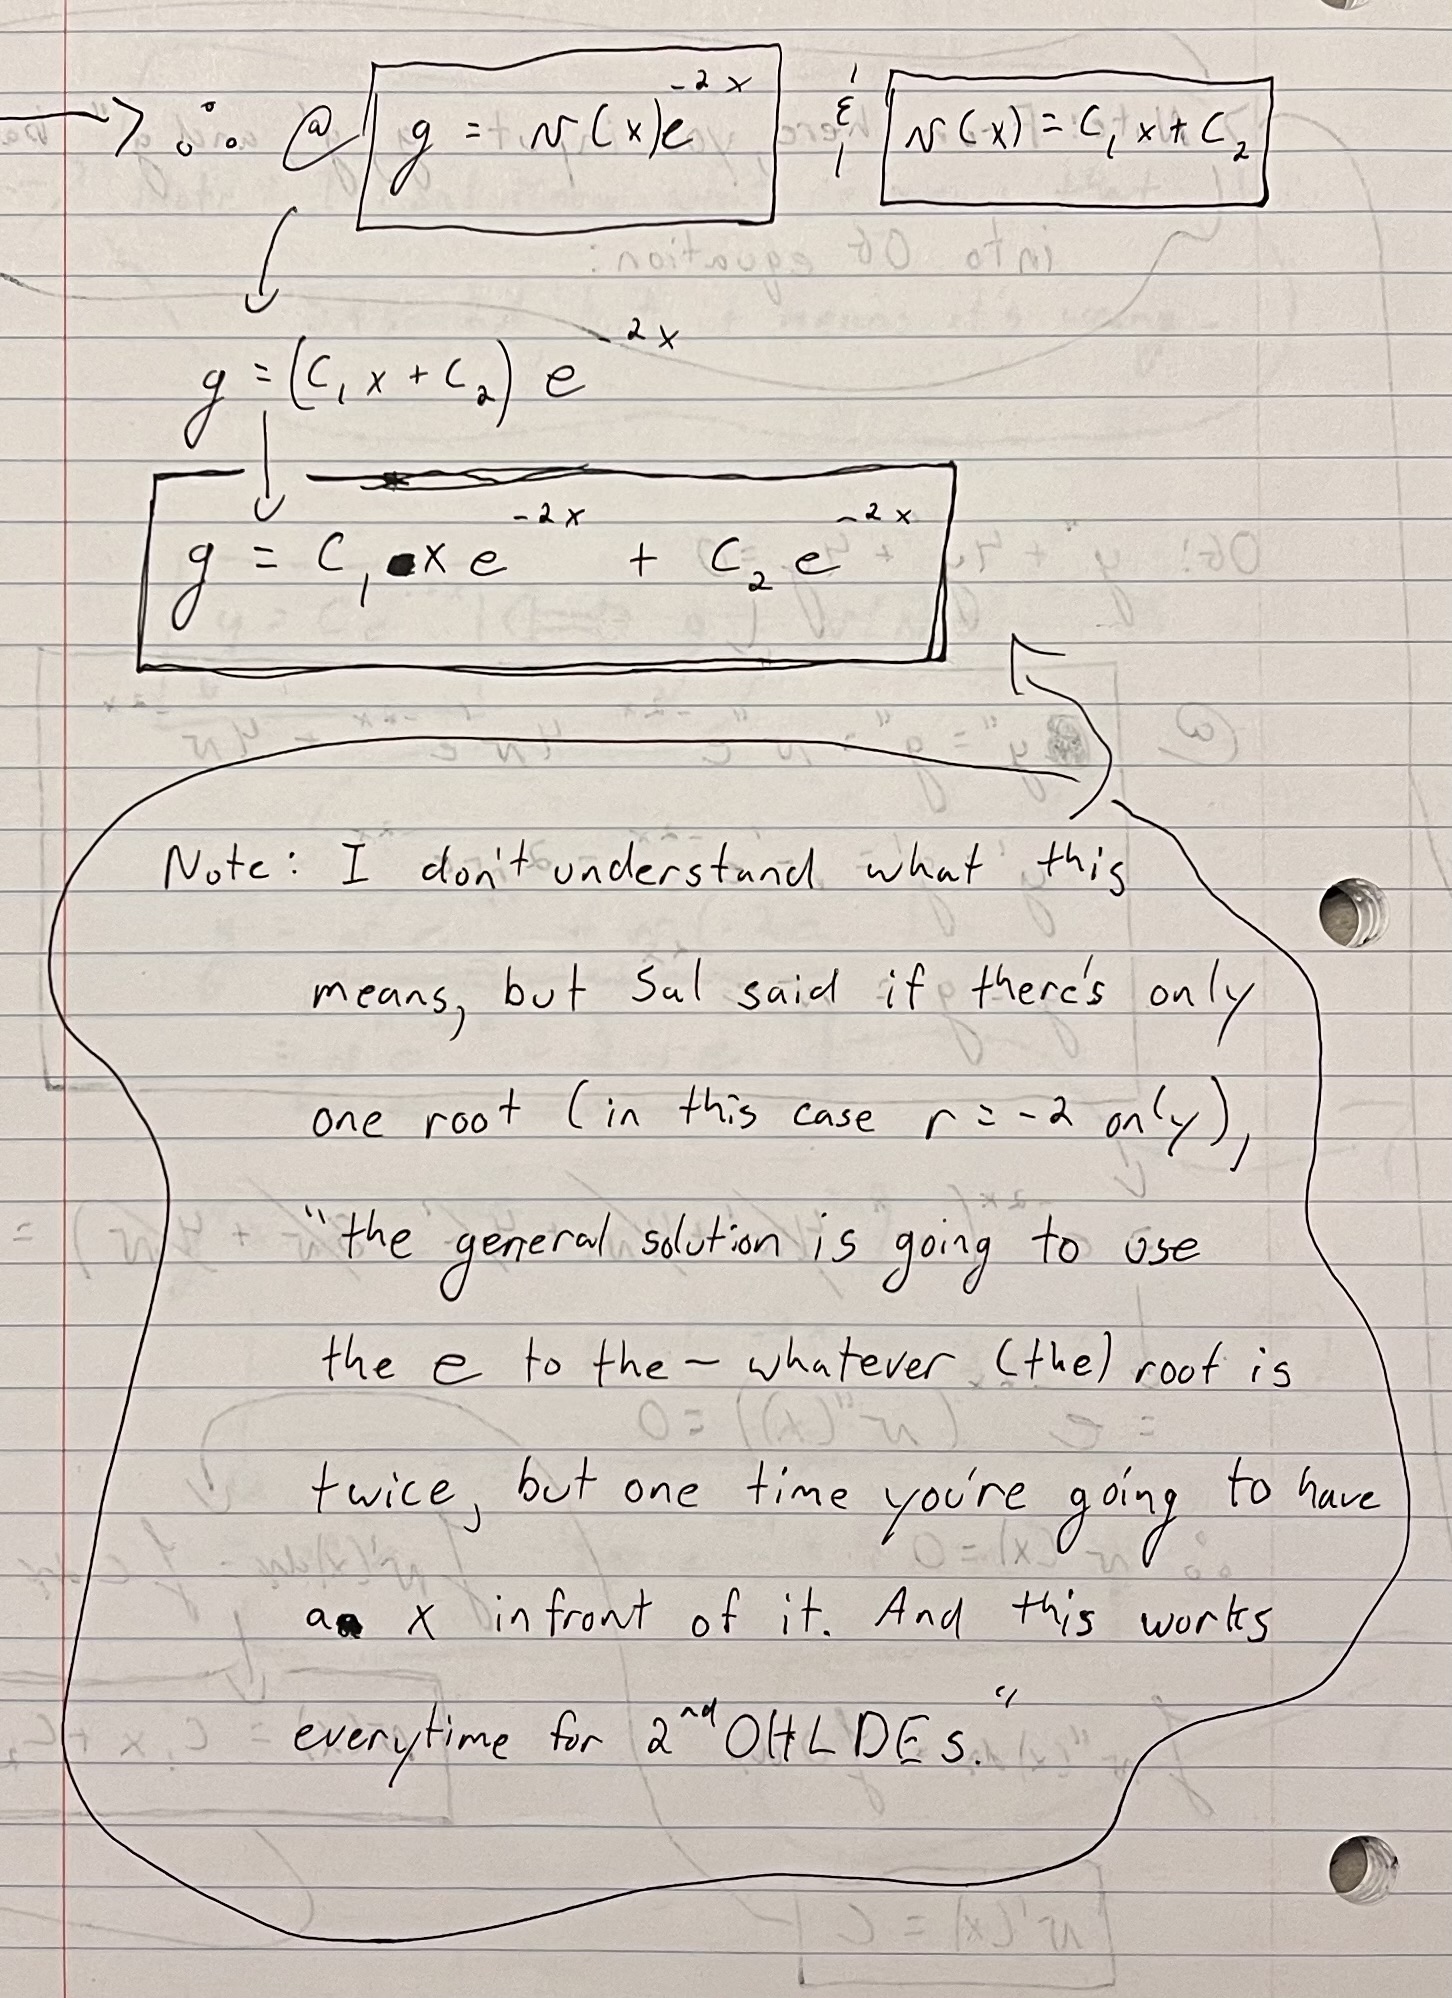 → ∴ @ g = v(x)e^{-2x} & v(x) = C₁x + C₂
g = (C₁x + C₂) e^{-2x}
g = C₁xe^{-2x} + C₂e^{-2x}
Note: I don't understand what this
means, but Sal said if there's only
one root (in this case r = -2 only),
"the general solution is going to use
the e to the – whatever (the) root is
twice, but one time you're going to have
a x infront of it. And this works
everytime for 2nd OHLDEs."